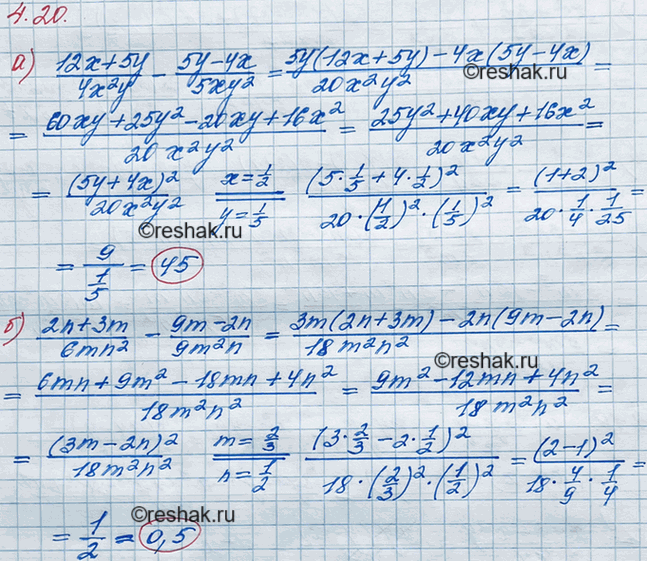 4.20.
а) (12x+5y)/(4x²y) - (5y-4x)/(5xy²) = (5y(12x+5y)-4x(5y-4x))/(20x²y²) =
= (60xy+25y²-20xy+16x²)/(20x²y²) = (25y²+40xy+16x²)/(20x²y²) =
= (5y+4x)²/(20x²y²) x=1/2 y=1/5 = (5·1/5+4·1/2)²/(20·(1/2)²·(1/5)²) = (1+2)²/(20·1/4·1/25)
©reshak.ru ©reshak.ru
= 9/(1/5) = 45
©reshak.ru
б) (2n+3m)/(6mn²) - (9m-2n)/(9m²n) = (3m(2n+3m)-2n(9m-2n))/(18m²n²) =
©reshak.ru
= (6mn+9m²-18mn+4n²)/(18m²n²) = (9m²-12mn+4n²)/(18m²n²) =
= (3m-2n)²/(18m²n²) m=2/3 n=1/2 = (3·2/3-2·1/2)²/(18·(2/3)²·(1/2)²) = (2-1)²/(18·4/9·1/4) =
©reshak.ru
= 1/2 = 0,5